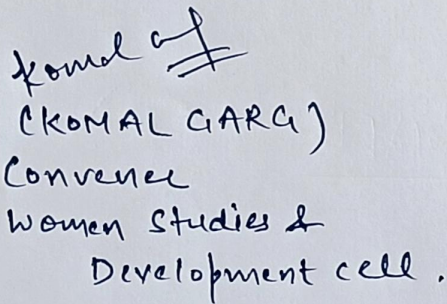 Komal
(KOMAL GARG)
Convener
Women Studies &
Development cell.